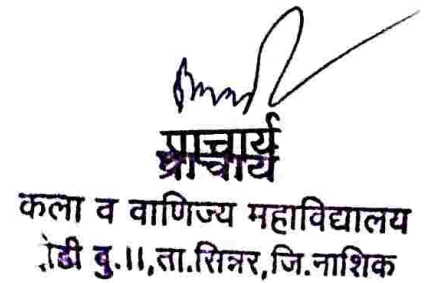 प्राचार्य
कला व वाणिज्य महाविद्यालय
बु.॥,ता.सिन्नर,जि.नाशिक